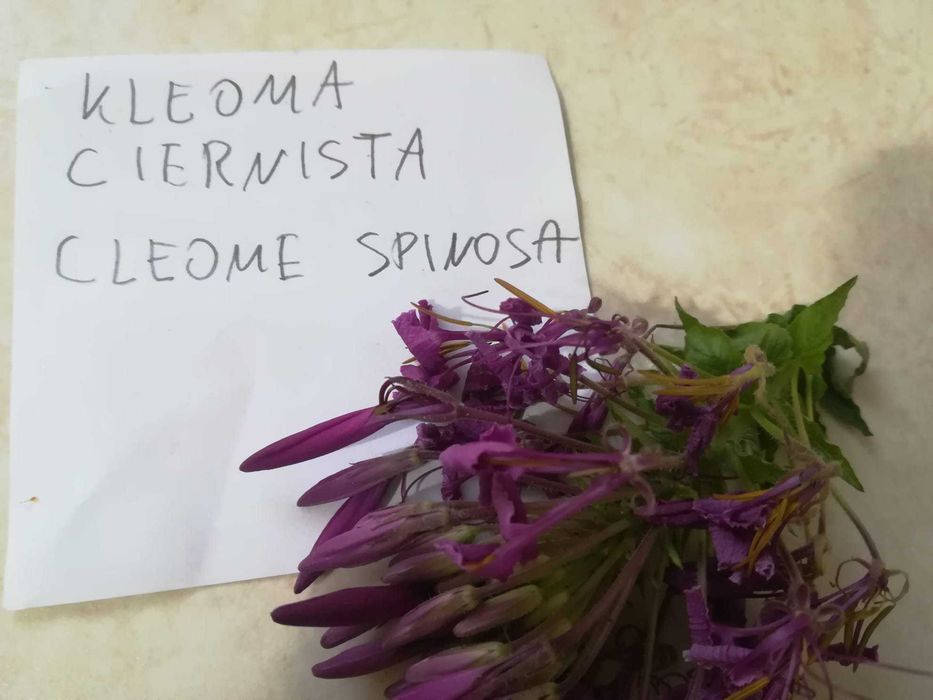 KLEOMA
CIERNISTA
CLEOME SPINOSA